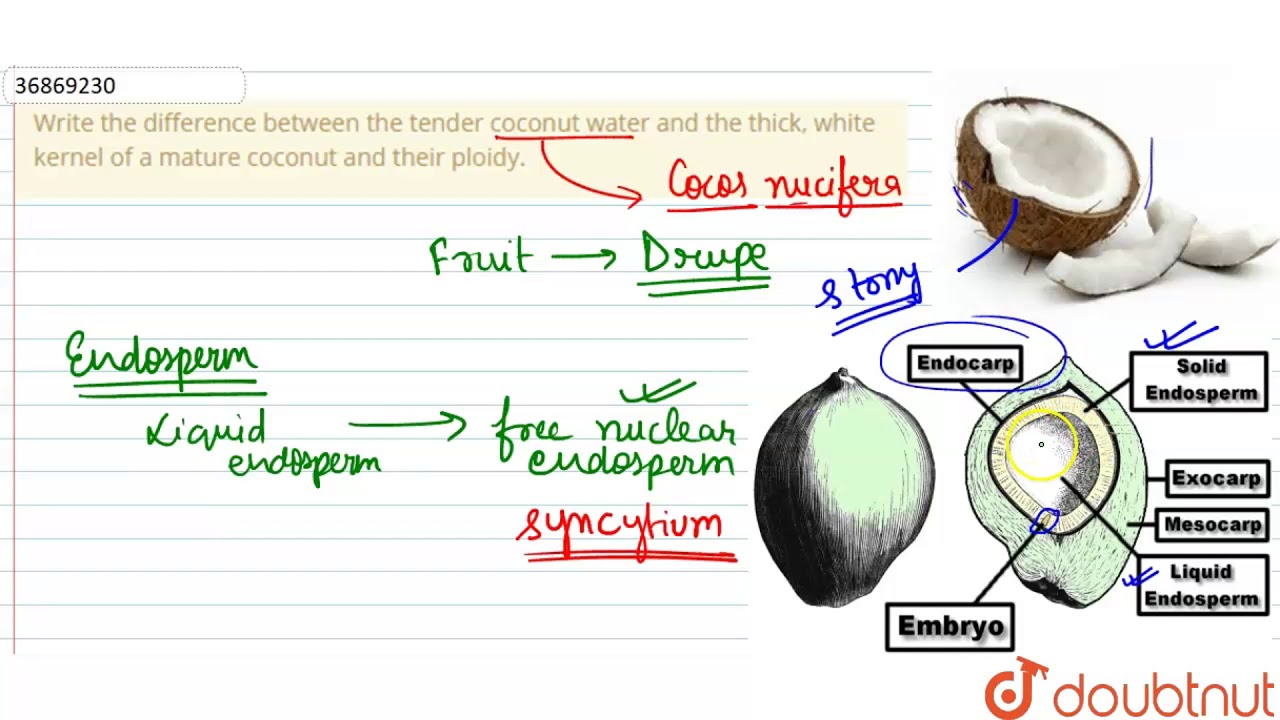 36869230
Write the difference between the tender coconut water and the thick, white
kernel of a mature coconut and their ploidy.
Cocos nucifera
Fruit → Drupe
stony
Endosperm
Liquid endosperm → free nuclear endosperm
syncytium
Endocarp
Solid
Endosperm
Exocarp
Mesocarp
Liquid
Endosperm
Embryo
doubtnut